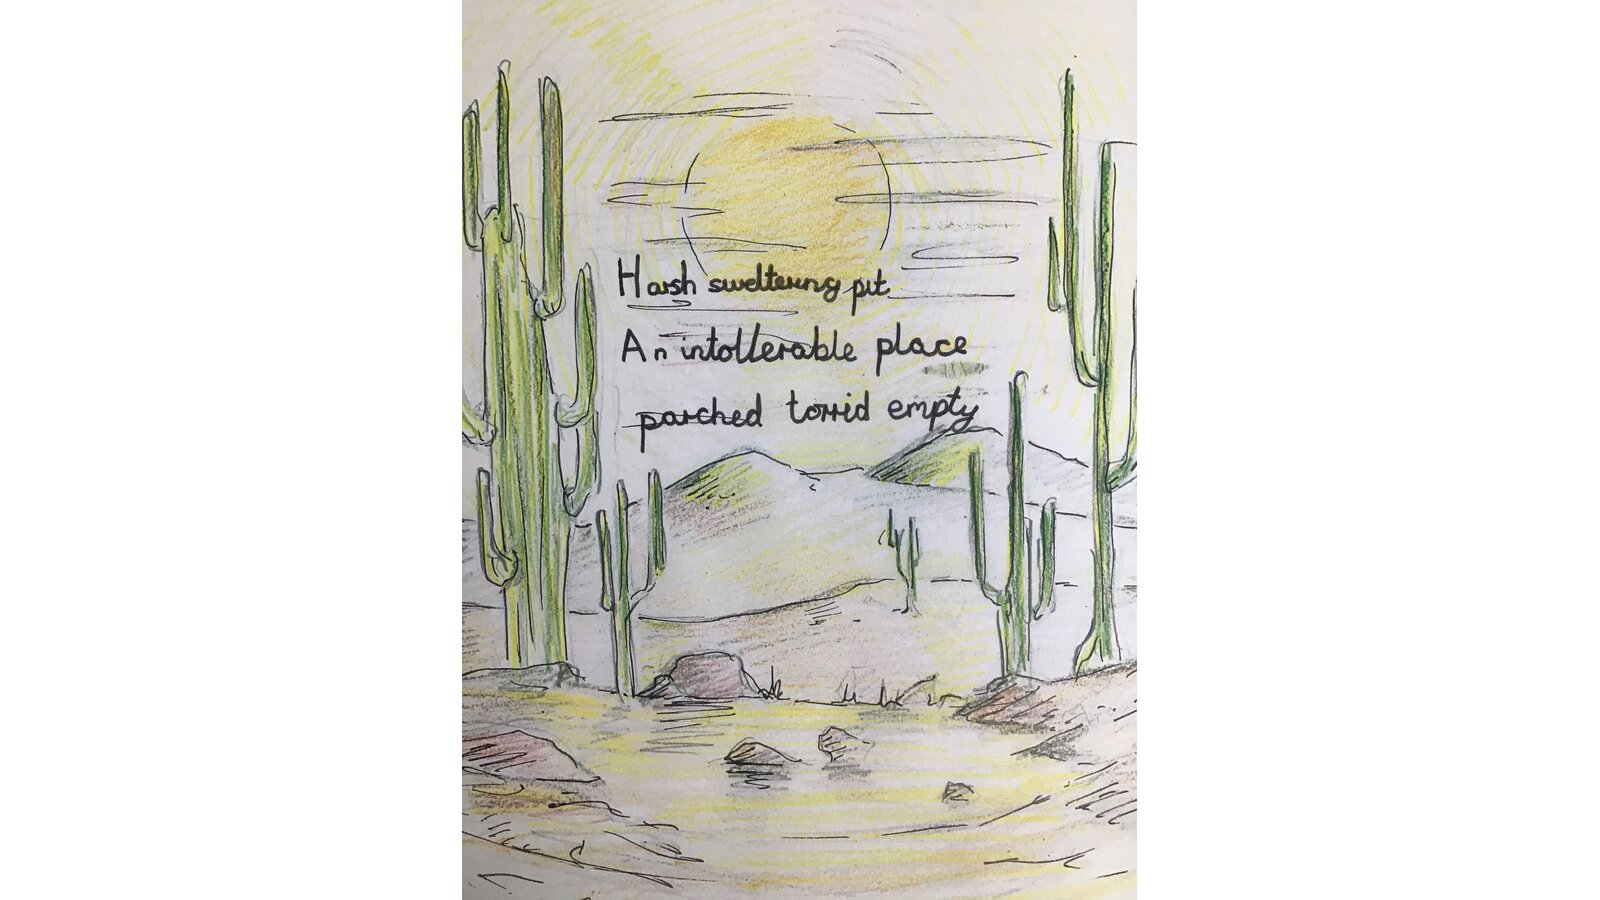 Harsh sweltering pit
An intollerable place
parched torrid empty